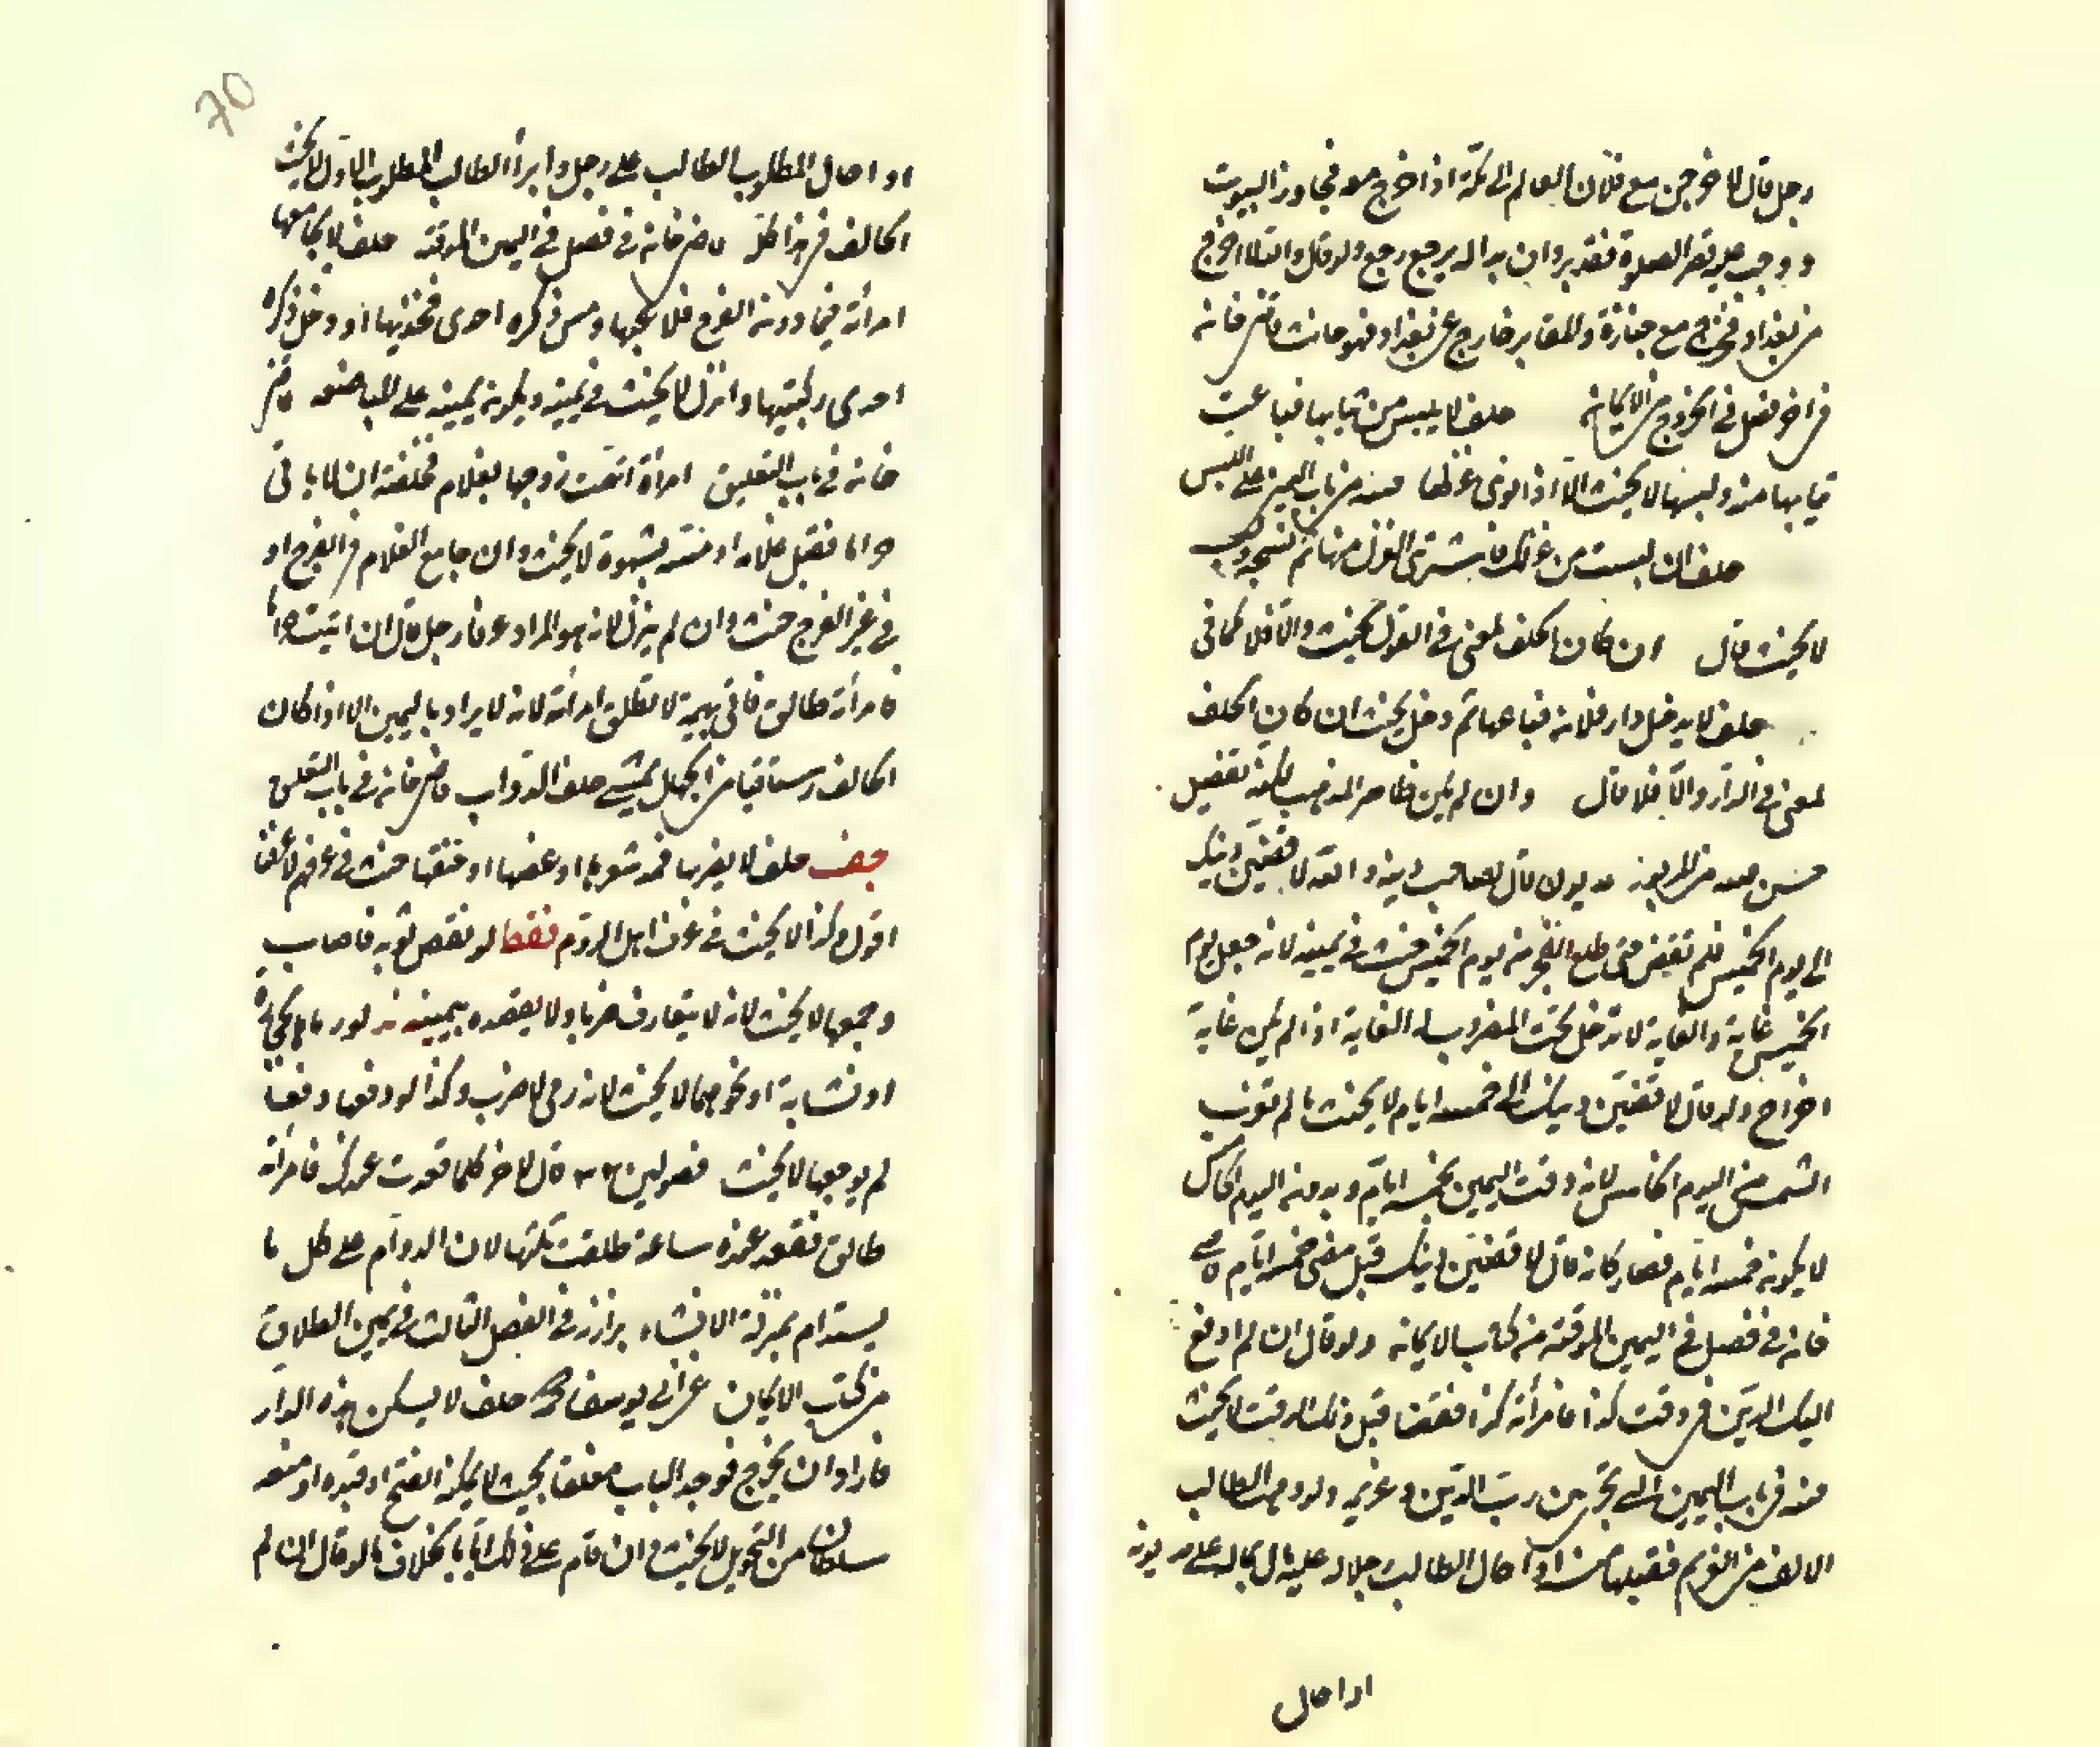 رجل قال لاخرجن مع فلان العالم الى مكة اذا خرج معه فجاوز البيوت
ووجب عليه قصر الصلوة فقد بر وان بدا له يرجع رجع ولو قال والله لا اخرج
من بغداد فخرج مع جنازة والمقابر خارج عن بغداد فهو حانث قاضى خانه
فى اخر فصل فى الخروج من الايمانه حلف لا يلبس من ثيابها فباعت
ثيابها منه ولبسها لا يحنث الا اذا نوى غزلها منه من باب اليمين على اللبس
حلف ان لبست من غزلك فاشترى الغزل منها ثم نسجه ولبس
لا يحنث قال ان كان الحلف لمعنى فى الغزل يحنث والا فلا كما فى
حلف لا يدخل دار فلانه فباعها ثم دخل يحنث ان كان الحلف
لمعنى فى الدار والا فلا قال وان لم يكن فظاهر المذهب لكنه تفصيل
حسن مديون قال لصاحب دينه والله لاقضين دينك
الى يوم الخميس فلم تقض حتى طلع الفجر من يوم الخميس حنث فى يمينه لانه جعل يوم
الخميس غاية والغاية لا تدخل تحت المضروب له الغاية اذا لم يكن غاية
اخراج ولو قال لاقضين دينك الى خمسة ايام لا يحنث ما لم تغرب
الشمس من اليوم الخامس لانه وقت اليمين بخمسة ايام وبدونه اليوم الخامس
لا يكونه خمسة ايام فصار كانه قال لاقضين دينك قبل مضى خمسة ايام قاضى
خانه فى فصل فى اليمين الموقتة من كتاب الايمانه ولو قال ان لم ادفع
اليك الدين فى وقت كذا فامرأته كذا فقضا قبل ذلك الوقت لا يحنث
منه فى باب اليمين التى تجرى بين رب الدين وغريمه ولو وهب الطالب
الالف من الغريم فقبلها منه او احال الطالب رجلا له عليه مال بماله على مديونه
او احال
او احال المطلوب الطالب على رجل وابرأ الطالب المطلوب الاول لا يحنث
الحالف فى هذا كله قاضى خانه فى فصل فى اليمين الموقتة حلف لا يجامعها
امرأته فيما دونه الفرج فلا يحبها ومس ذكره احدى فخذيها او دخل ذكره
احدى ركبتيها وانزل لا يحنث فى يمينه ويكونه يمينه على المباضعة قاضى
خانه فى باب التعليق امرأة اتهمت زوجها بغلام فحلفته ان لا ياتى
حراما فقبل غلاما او مسه بشهوة لا يحنث وان جامع الغلام فى الفرج او
فى غير الفرج حنث وان لم ينزل لانه هو المراد عرفا رجل قال ان اتيت حراما
فامرأته طالق فاتى بهيمة لا تطلق امرأته لانه لا يراد باليمين الا اذا كان
الحالف رستاقيا من الجهل يمشى خلف الدواب قاضى خانه فى باب التعليق
جف حلف لا يضربها فمد شعرها او عضها او خنقها حنث فى عرفهم لا عرفنا
اقول وكذا لا يحنث فى عرف اهل الروم فقط لو نفض ثوبه فاصاب
وجهها لا يحنث لانه لا يتعارف ضربا ولا يقصده بيمينه لو رماها بحجارة
او نشابة او نحوهما لا يحنث لانه رمى لا ضرب وكذا لو دفعها دفعا
لم يوجعها لا يحنث فصولين قال لاخر كلما قعدت عندك فامرأته
طالق فقعد عنده ساعة طلقت ثلثا لان الدوام على كل ما
يستدام بمنزلة الانشاء بزازى فى الفصل الثالث فى يمين الطلاق
من كتاب الايمان عن ابى يوسف رح حلف لا يسكن هذه الدار
فاراد ان يخرج فوجد الباب مغلقا بحيث لا يمكنه الفتح او قيده او منعه
سلطان من التحويل لا يحنث وان قام على ذلك اياما بخلاف ما لو قال ان لم
70